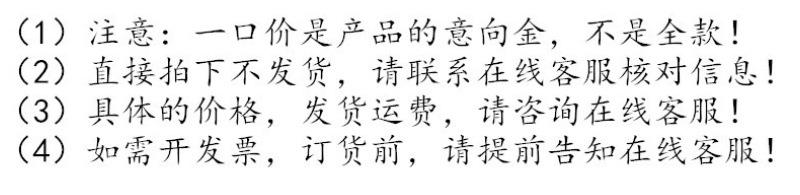 （1）注意：一口价是产品的意向金，不是全款！
（2）直接拍下不发货，请联系在线客服核对信息！
（3）具体的价格，发货运费，请咨询在线客服！
（4）如需开发票，订货前，请提前告知在线客服！